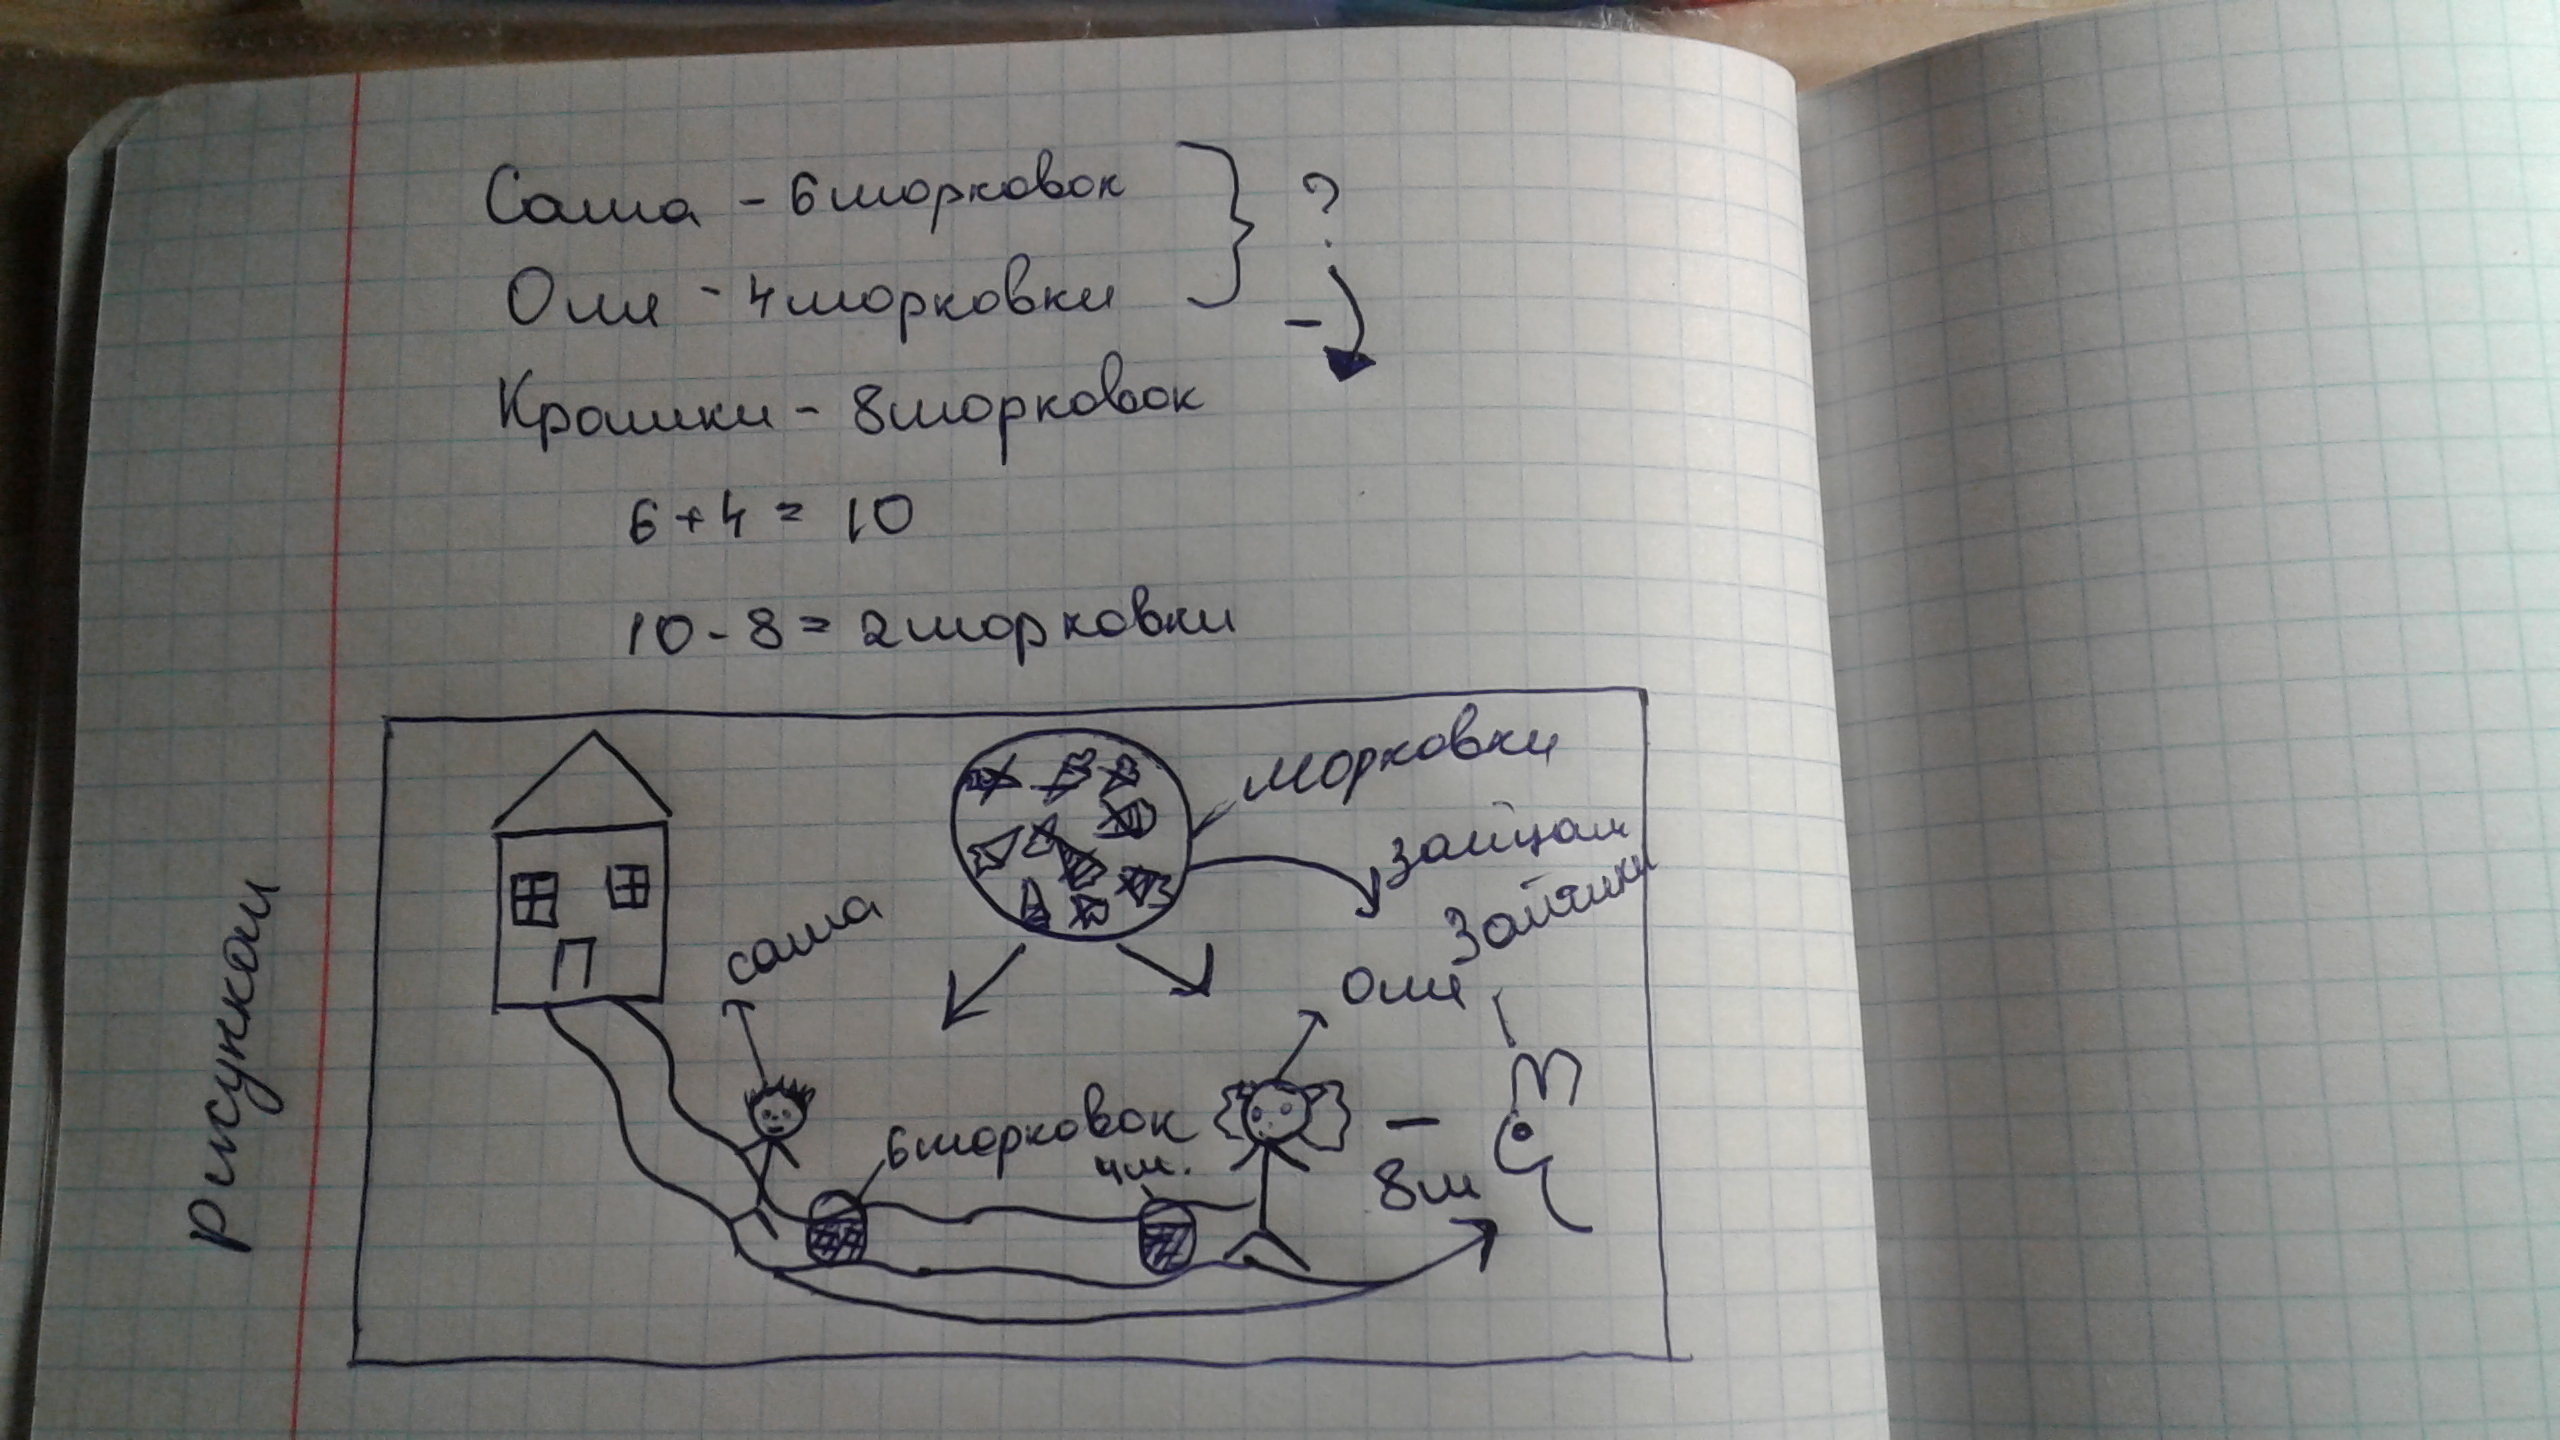 Саша - 6 морковок
?
Оля - 4 морковки
-
Крошки - 8 морковок
6 + 4 = 10
10 - 8 = 2 морковки
Рисунком
морковки
зайцам
Зайчики
саша
Оля
6 морковок
4 м.
-
8 м